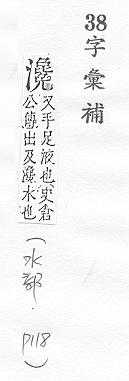 38 字彙補
瀺 又手足液也史倉
公傳出及瀺水也
(水部. P118)